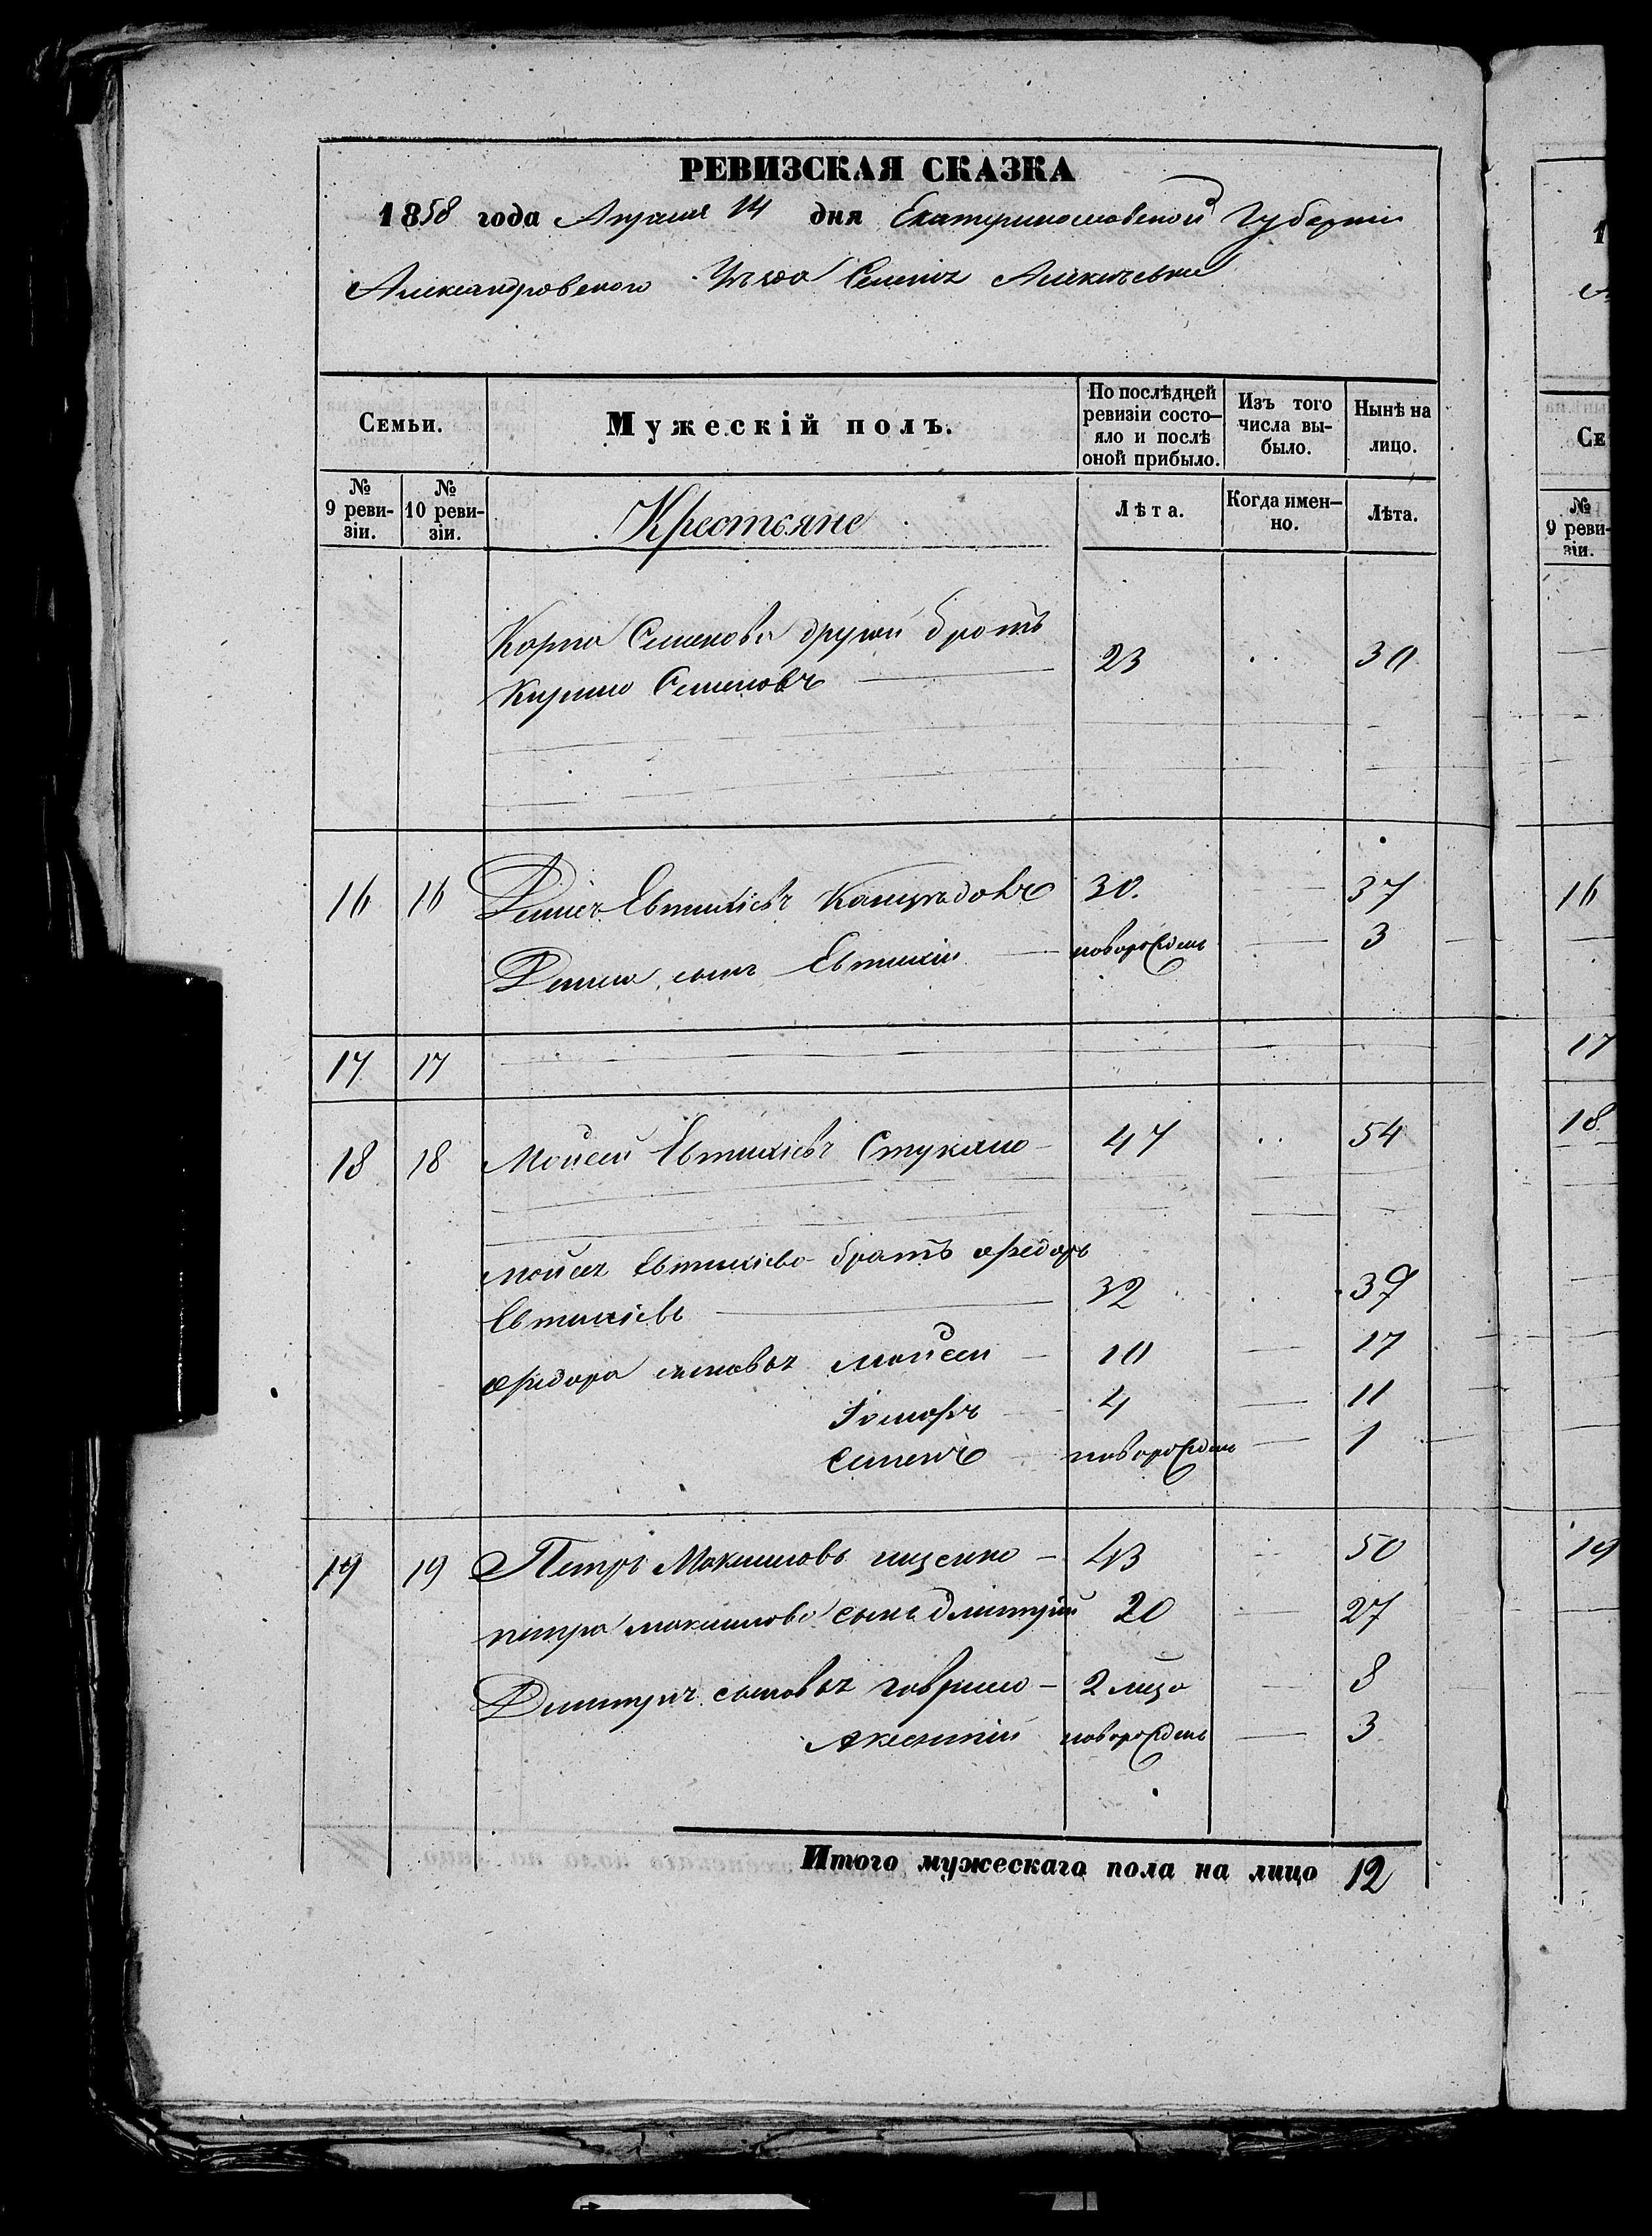 РЕВИЗСКАЯ СКАЗКА
1858 года Апреля 14 дня Екатеринославской Губернiи
Александровского Уѣзда Селенiя
Семьи.
Мужескiй полъ.
По послѣдней ревизiи состо-
яло и послѣ
оной прибыло.
Изъ того
числа вы-
было.
Нынѣ на
лицо.
№
9 реви-
зiи.
№
10 реви-
зiи.
Крестьяне
Лѣта.
Когда имен-
но.
Лѣта.
Карпа Семенова другой братъ
Кирило Семеновъ 23 30
16 16 Денисъ Евтихiевъ 30. 37
Дениса сынъ Евтихiй новорожден 3
17 17
18 18 Мойсей Евтихiевъ Стукало 47 54
Мойсея Евтихiева братъ Федоръ
Евтихiевъ 32 39
Федора сыновья Мойсей 10 17
4 11
Семенъ новорожден 1
19 19 Петръ Максимовъ 43 50
петра максимова сынъ Дмитрiй 20 27
Дмитрия сыновья гаврило 2 8
Аксентiй новорожден 3
Итого мужескаго пола на лицо 12
1
Се
№
9 реви-
зiи.
16
17
18
19